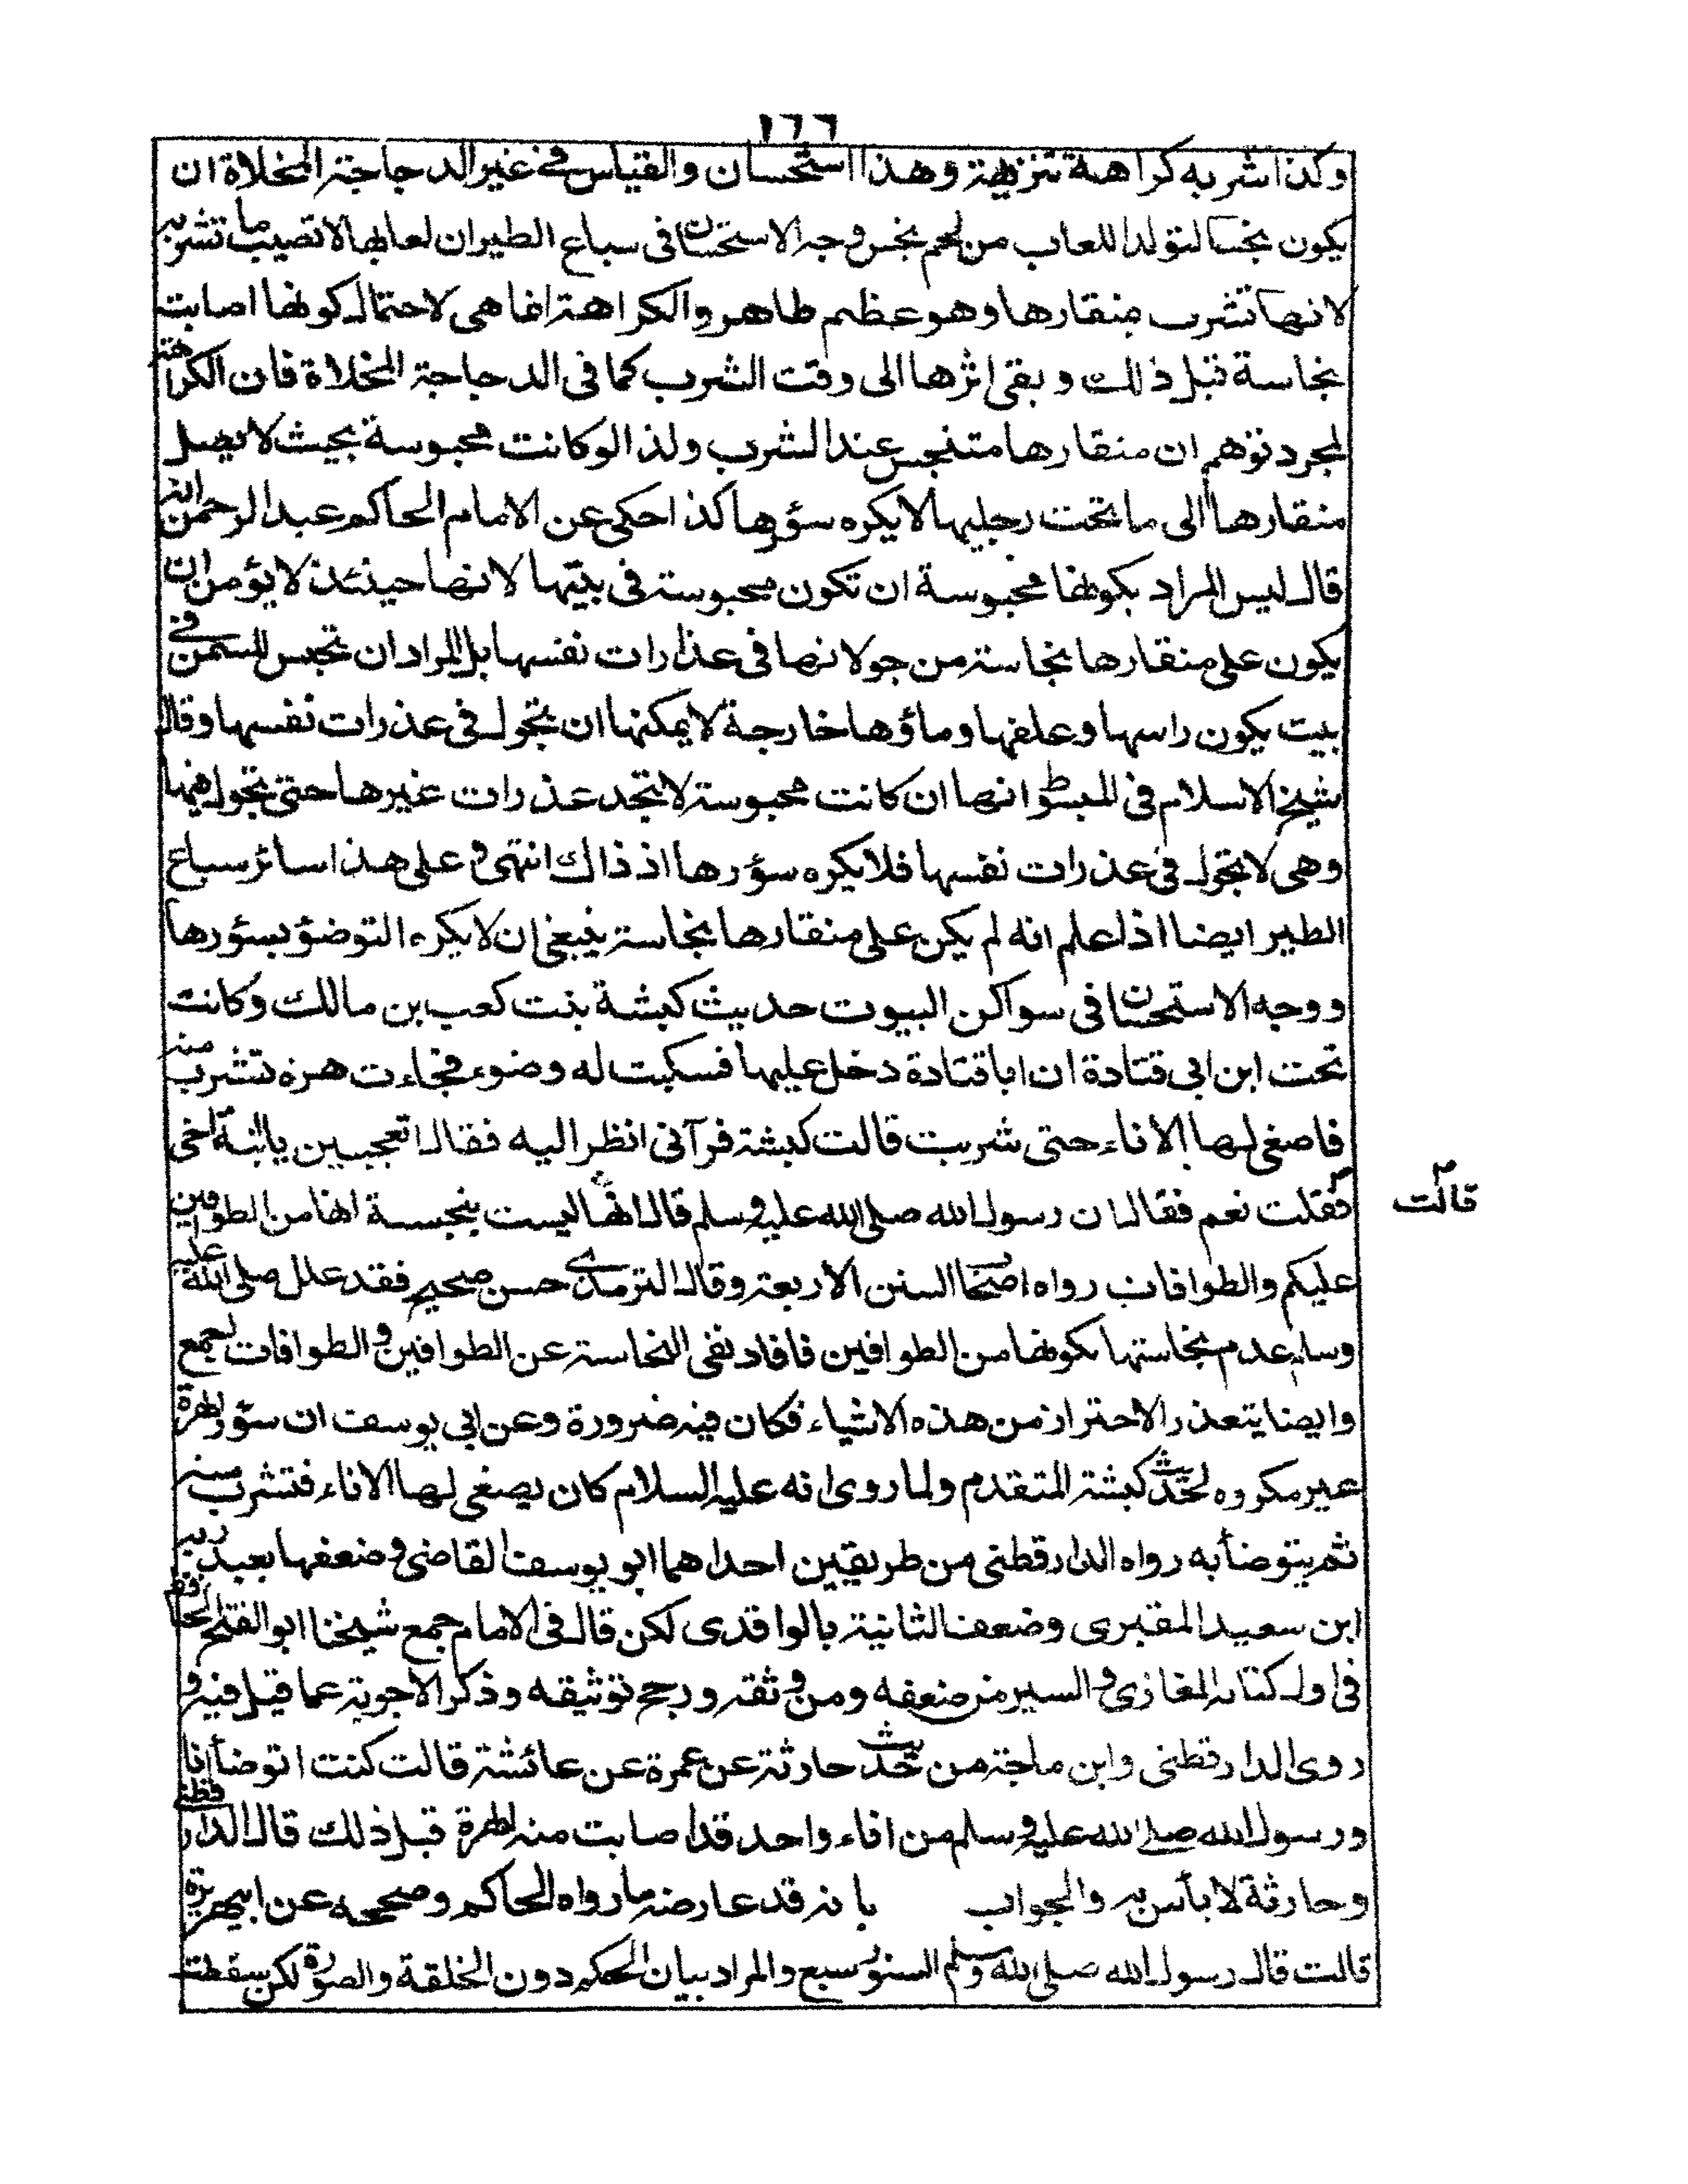 ١٦٦
وكذا شربه كراهة تنزيهية وهذا استحسان والقياس في غير الدجاجة المخلاة ان
يكون نجسا لتولد اللعاب من لحم نجس وجه الاستحسان فى سباع الطيران لعابها لا تصيب ما تشربه
لانها تشرب بمنقارها وهو عظم طاهر والكراهة انما هى لاحتمال كونها اصابت
نجاسة قبل ذلك وبقى اثرها الى وقت الشرب كما فى الدجاجة المخلاة فان الكراهة
لمجرد توهم ان منقارها متنجس عند الشرب ولذا لو كانت محبوسة بحيث لا يصل
منقارها الى ما تحت رجليها لا يكره سؤرها كذا حكى عن الامام الحاكم عبد الرحمن انه
قال ليس المراد بكونها محبوسة ان تكون محبوسة فى بيتها لانها حينئذ لا يؤمن ان
يكون على منقارها نجاسة من جولانها فى عذرات نفسها بل المراد ان تحبس للسمن في
بيت يكون راسها وعلفها وماؤها خارجة لا يمكنها ان تجول فى عذرات نفسها وقال
شيخ الاسلام فى المبسوط انها ان كانت محبوسة لا تجد عذرات غيرها حتى تجول فيها
وهى لا تجول فى عذرات نفسها فلا يكره سؤرها اذ ذاك انتهى وعلى هذا سائر سباع
الطير ايضا اذا علم انه لم يكن على منقارها نجاسة ينبغى ان لا يكره التوضؤ بسؤرها
ووجه الاستحسان فى سواكن البيوت حديث كبشة بنت كعب بن مالك وكانت
تحت ابن ابى قتادة ان ابا قتادة دخل عليها فسكبت له وضوء فجاءت هرة تشرب منه
فاصغى لها الاناء حتى شربت قالت كبشة فرآنى انظر اليه فقال اتعجبين يا ابنة اخى
قالت
فقلت نعم فقال ان رسول الله صلى الله عليه وسلم قال انها ليست بنجسة انها من الطوافين
عليكم والطوافات رواه اصحاب السنن الاربعة وقال الترمذى حسن صحيح فقد علل صلى الله عليه
وسلم عدم نجاستها بكونها من الطوافين فافاد نفى النجاسة عن الطوافين والطوافات لجمع
وايضا يتعذر الاحتراز من هذه الاشياء فكان فيه ضرورة وعن ابى يوسف ان سؤر الهرة
غير مكروه لحديث كبشة المتقدم ولما روى انه عليه السلام كان يصغى لها الاناء فتشرب منه
ثم يتوضأ به رواه الدارقطنى من طريقين احداهما ابو يوسف القاضى وضعفها بعبد ربه
ابن سعيد المقبرى وضعف الثانية بالواقدى لكن قال فى الامام جمع شيخنا ابو الفتح الحافظ
فى اول كتاب المغازى والسير من ضعفه ومن وثقه ورجح توثيقه وذكر الاجوبة عما قيل فيه و
روى الدارقطنى وابن ماجة من حديث حارثة عن عمرة عن عائشة قالت كنت اتوضأ انا
ورسول الله صلى الله عليه وسلم من اناء واحد قد اصابت منه الهرة قبل ذلك قال الدارقطنى
وحارثة لا بأس به والجواب بانه قد عارضه ما رواه الحاكم وصححه عن ابى هريرة
قالت قال رسول الله صلى الله وسلم السنور سبع والمراد بيان الحكم دون الخلقة والصورة لكن سقطت